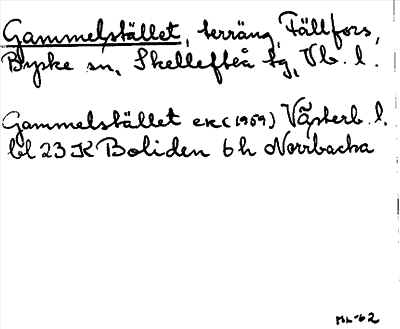 Gammelstället, terräng, Fällfors,
Byske sn, Skellefteå tg, Vb. l.
Gammelstället ek (1959) Västerb. l.
bl 23 K Boliden 6h Norrbacka
ML-62